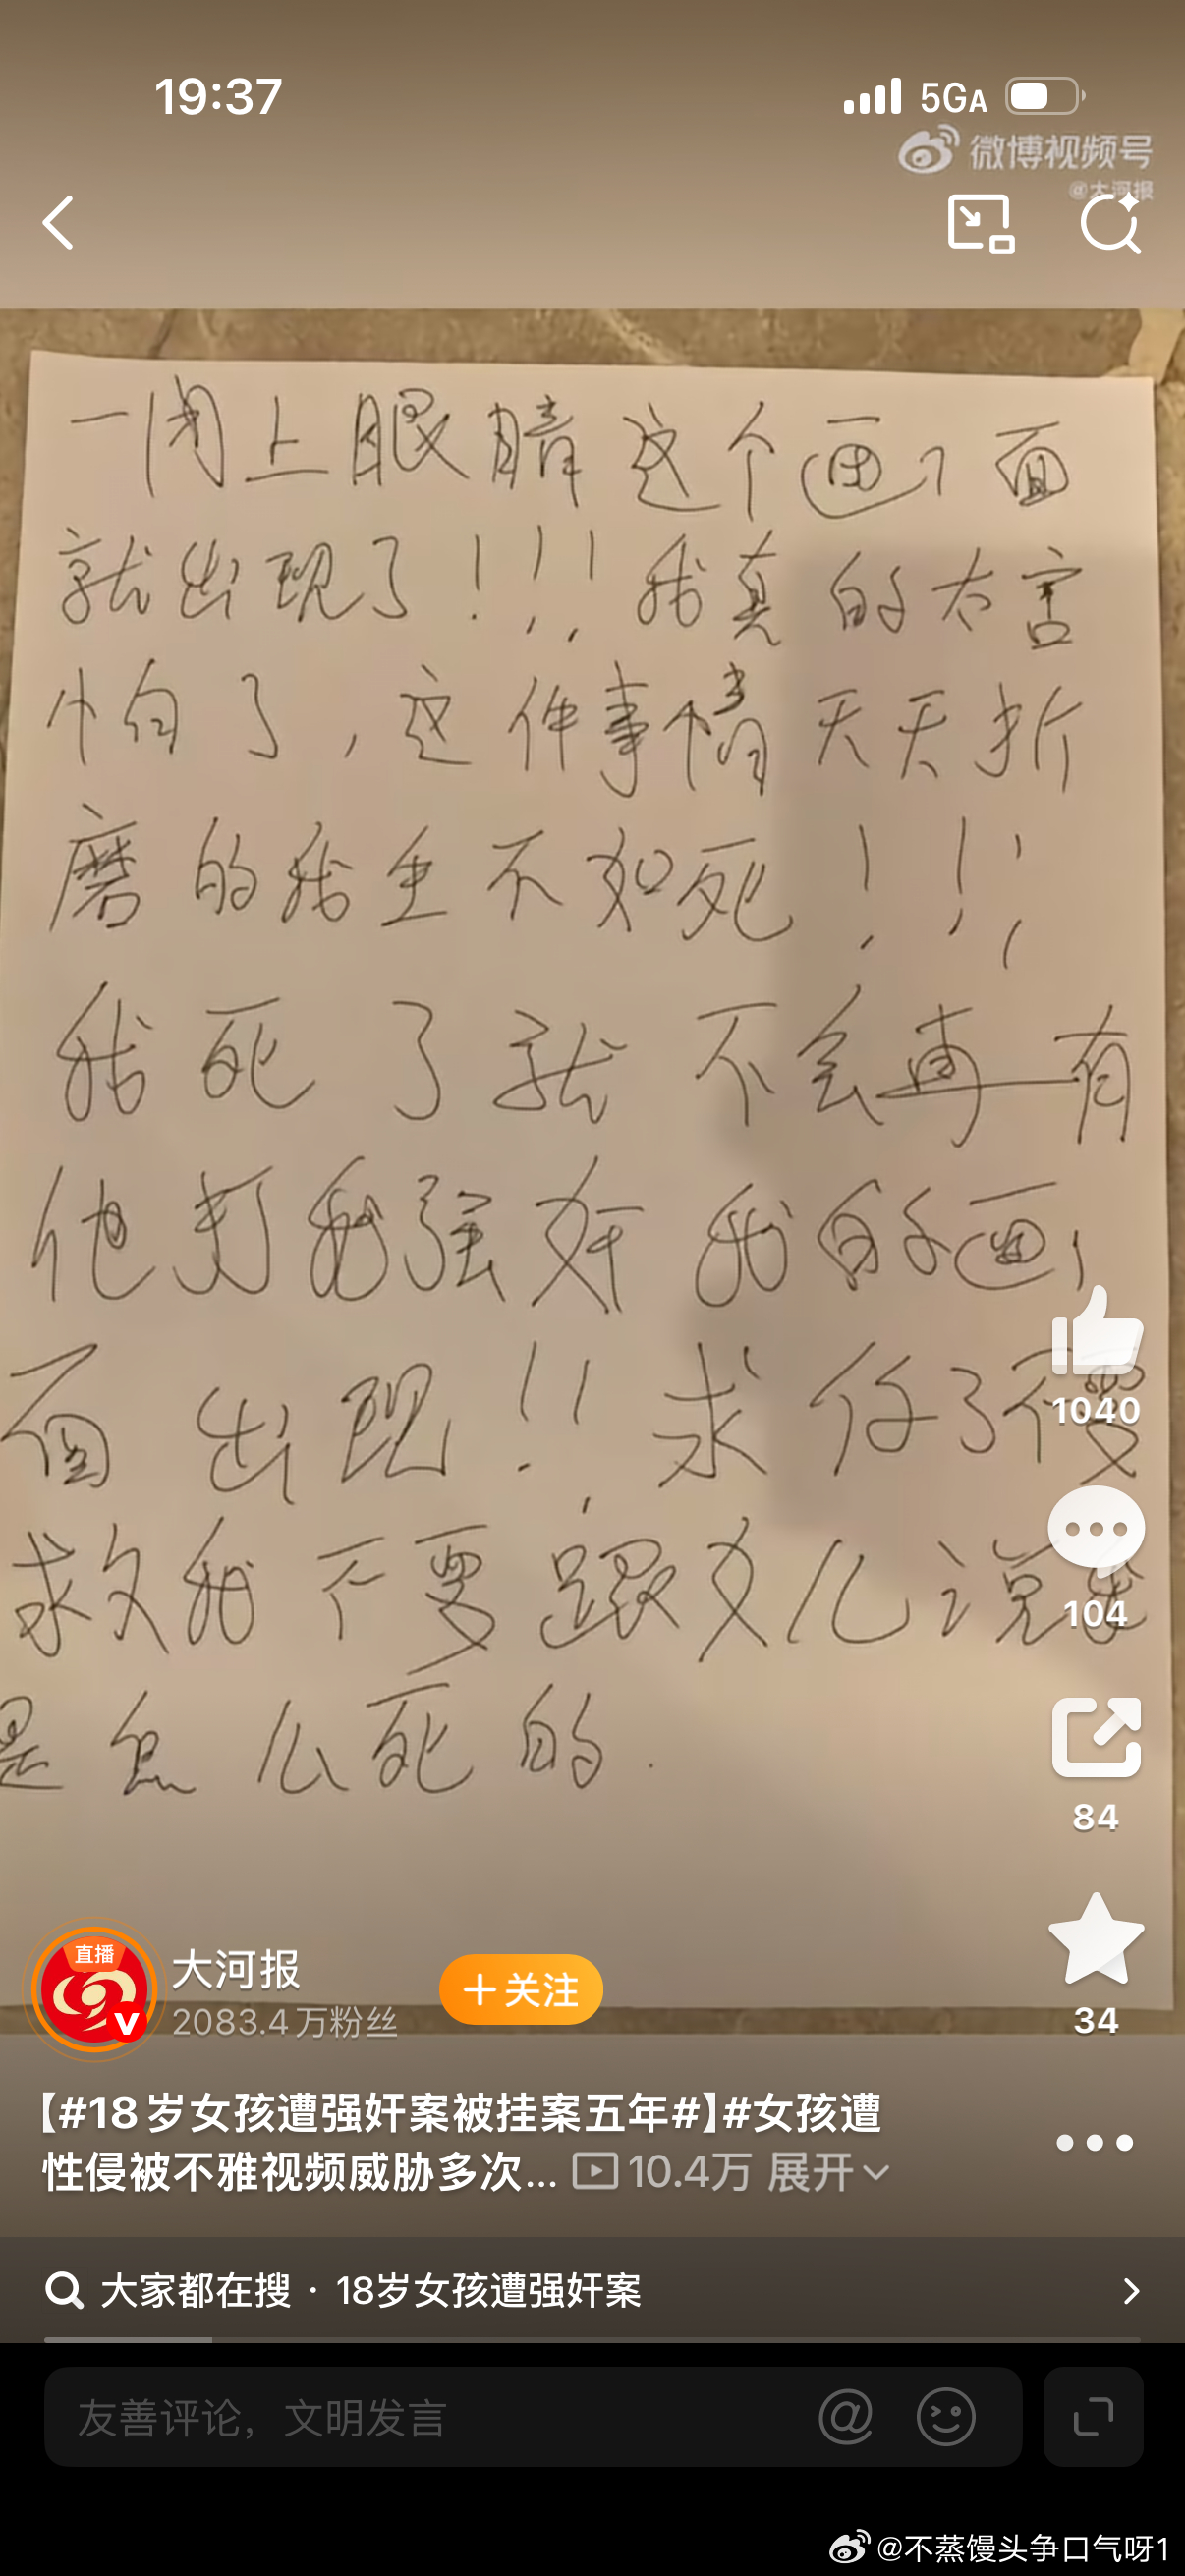 19:37
5GA
微博视频号
@大河报
一闭上眼睛这个画面
就出现了！！！我真的太害
怕了，这件事情天天折
磨的我生不如死！！！
我死了就不会再有
他打我强奸我的画
面出现！！求你了不要
救我不要跟女儿说我
是怎么死的.
1040
104
84
34
直播
大河报
2083.4万粉丝
+关注
【#18岁女孩遭强奸案被挂案五年#】#女孩遭
性侵被不雅视频威胁多次... 10.4万 展开
大家都在搜 · 18岁女孩遭强奸案
友善评论，文明发言
@不蒸馒头争口气呀1